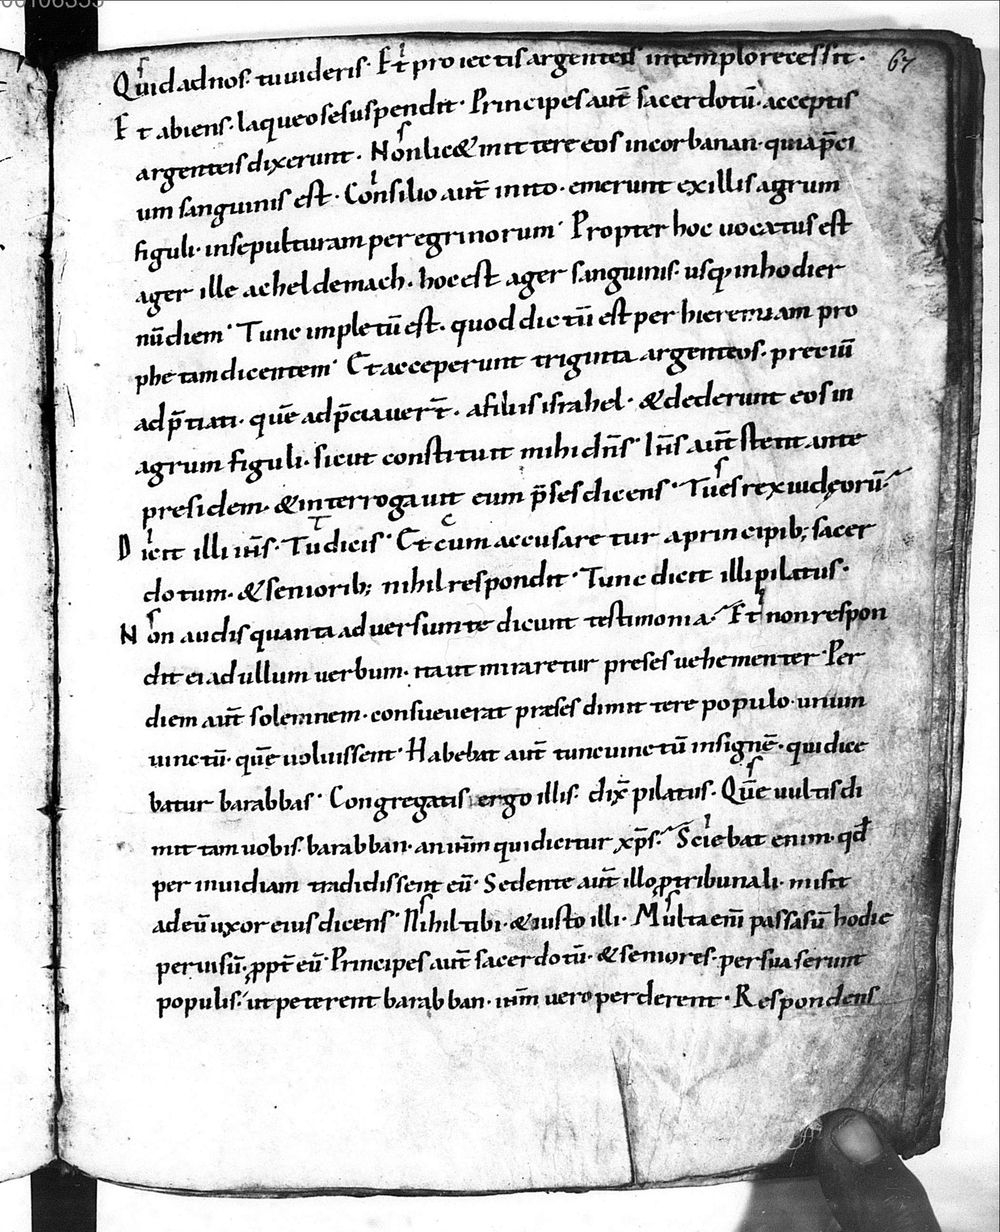 00106555
67
Quid ad nos · tu videris · Et proiectis argenteis in templo recessit ·
Et abiens · laqueo se suspendit · Principes aut̄ sacerdotū · acceptis
argenteis dixerunt · Non lic& mittere eos in corbanan · quia p̄ci
um sanguinis est · Consilio aut̄ inito · emerunt ex illis agrum
figuli · in sepulturam peregrinorum · Propter hoc uocatus est
ager ille acheldemach · hoc est ager sanguinis · usq; in hodier
nū diem · Tunc impletū est · quod dictū est per hieremiam pro
phetam dicentem · Et acceperunt triginta argenteos · preciū
adp̄tiati · quē adp̄ciauer̄t · a filiis israhel · & dederunt eos in
agrum figuli · sicut constituit mihi dn̄s · Ihs̄ aut̄ stetit ante
presidem · & interrogauit eum p̄ses dicens · Tu es rex iudęorū ·
Dicit illi ihs̄ · Tu dicis · Et cum accusaretur a principib; sacer
dotum · & seniorib; nihil respondit · Tunc dicit illi pilatus ·
Non audis quanta aduersum te dicunt testimonia · Et non respon
dit ei ad ullum uerbum · ita ut miraretur preses uehementer · Per
diem aut̄ solemnem · consueuerat præses dimittere populo · unum
uinctū · quē uoluissent · Habebat aut̄ tunc uinctū insignē · qui dice
batur barabbas · Congregatis ergo illis · dix̄ pilatus · Quē uultis di
mittam uobis · barabban · an ihm̄ qui dicitur xp̄s · Sciebat enim · qđ
per inuidiam tradidissent eū · Sedente aut̄ illo ꝓ tribunali · misit
ad eū uxor eius dicens · Nihil tibi · & iusto illi · Multa eni͞ passa sū hodie
per uisū · ꝓpt̄ eū · Principes aut̄ sacerdotū · & seniores · persuaserunt
populis · ut peterent barabban · ihm̄ uero perderent · Respondens